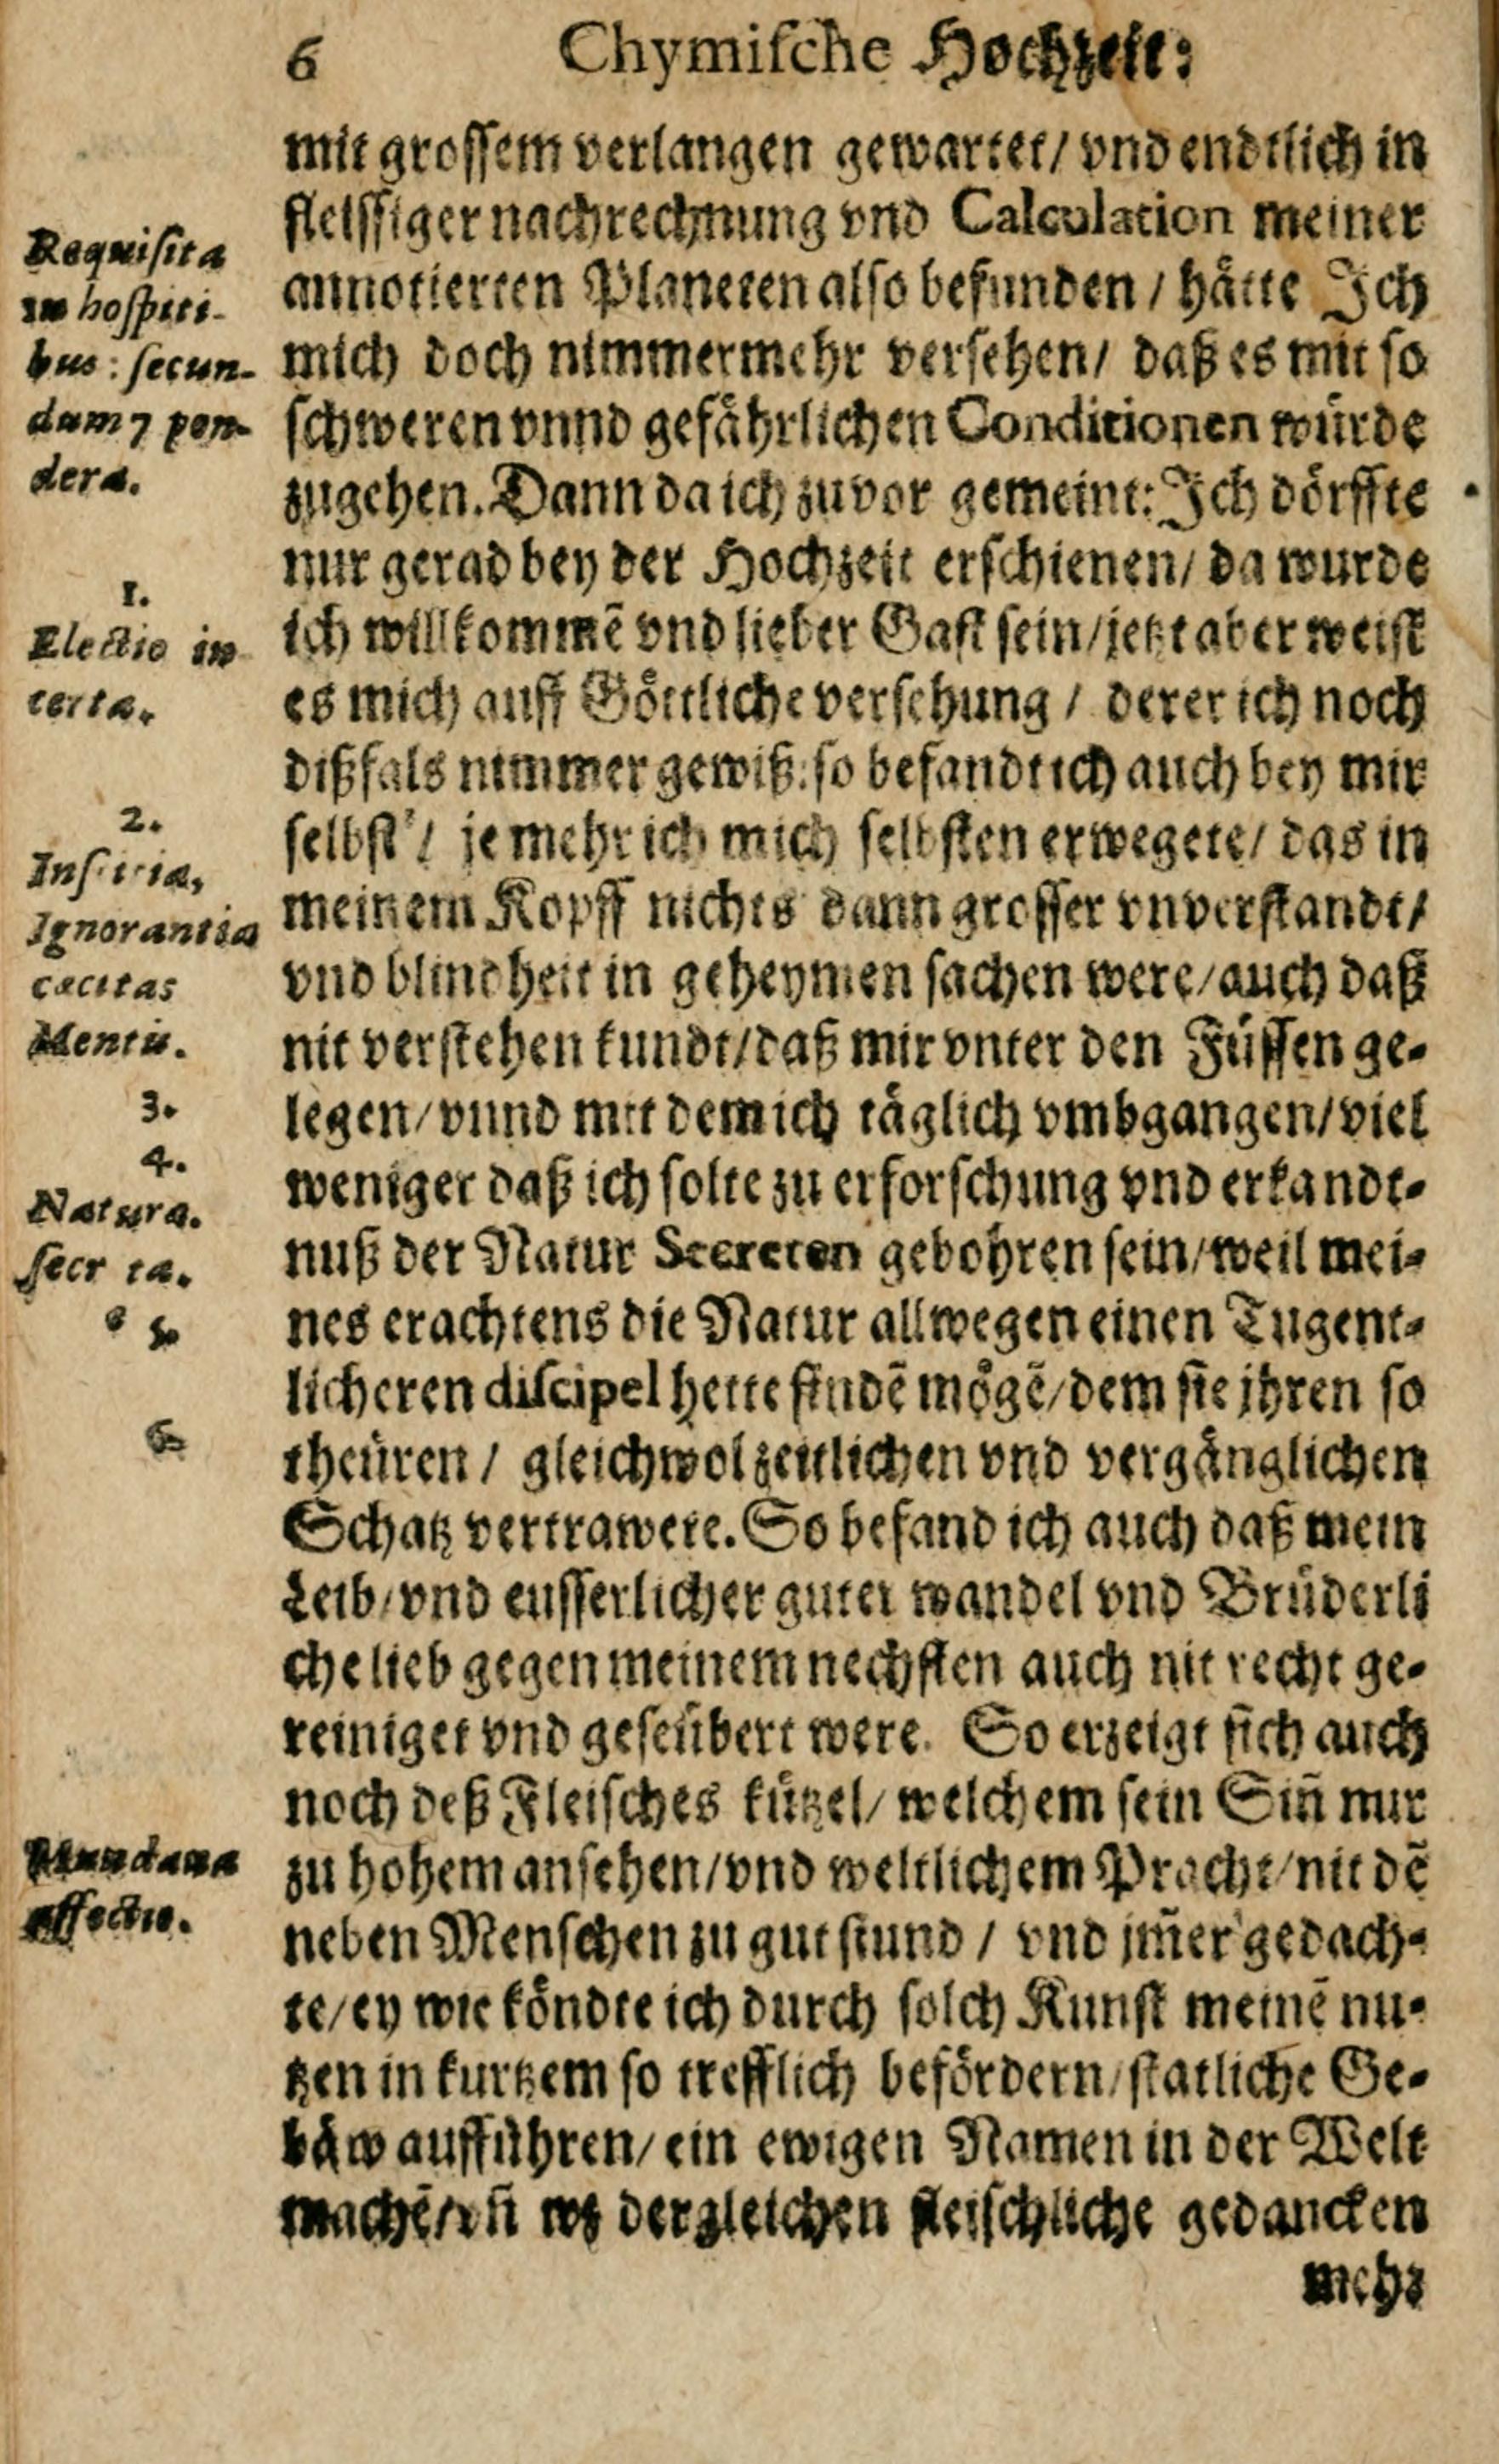 6 Chymische Hochzeit:
mit grossem verlangen gewartet/ vnd endtlich in
fleissiger nachrechnung vnd Calculation meiner
annotierten Planeten also befunden / hätte Ich
mich doch nimmermehr versehen/ daß es mit so
schweren vnnd gefährlichen Conditionen würde
zugehen. Dann da ich zuvor gemeint: Ich dörffte
nur gerad bey der Hochzeit erschienen/ da wurde
ich willkommē vnd lieber Gast sein/ jetzt aber weist
es mich auff Göttliche versehung / derer ich noch
dißfals nimmer gewiß: so befandt ich auch bey mir
selbst / je mehr ich mich selbsten erwegete/ das in
meinem Kopff nichts dann grosser vnverstandt/
vnd blindheit in geheymen sachen were/ auch daß
nit verstehen kundt/ daß mir vnter den Füssen ge-
legen/ vnnd mit dem ich täglich vmbgangen/ viel
weniger daß ich solte zu erforschung vnd erkandt-
nuß der Natur Secreten gebohren sein/ weil mei-
nes erachtens die Natur allwegen einen Tugent-
licheren discipel hette findē mögē/ dem sie jhren so
theüren / gleichwol zeitlichen vnd vergänglichen
Schatz vertrawete. So befand ich auch daß mein
Leib/ vnd eusserlicher guter wandel vnd Brüderli
che lieb gegen meinem nechsten auch nit recht ge-
reiniget vnd geseübert were. So erzeigt sich auch
noch deß Fleisches kützel/ welchem sein Siñ nur
zu hohem ansehen/ vnd weltlichem Pracht/ nit dē
neben Menschen zu gut stund / vnd jm̃er gedach-
te/ ey wie köndte ich durch solch Kunst meinē nu-
tzen in kurtzem so trefflich befördern/ statliche Ge-
bäw auffführen/ ein ewigen Namen in der Welt
machē/ vñ ws dergleichen fleischliche gedancken
mehr
Requisita
in hospiti-
bus: secun-
dum 7 pon-
dera.
1.
Electio in
certa.
2.
Inscitia,
Ignorantia
cæcitas
Mentis.
3.
4.
Natura.
secr ta.
5.
6.
Mundana
affectio.